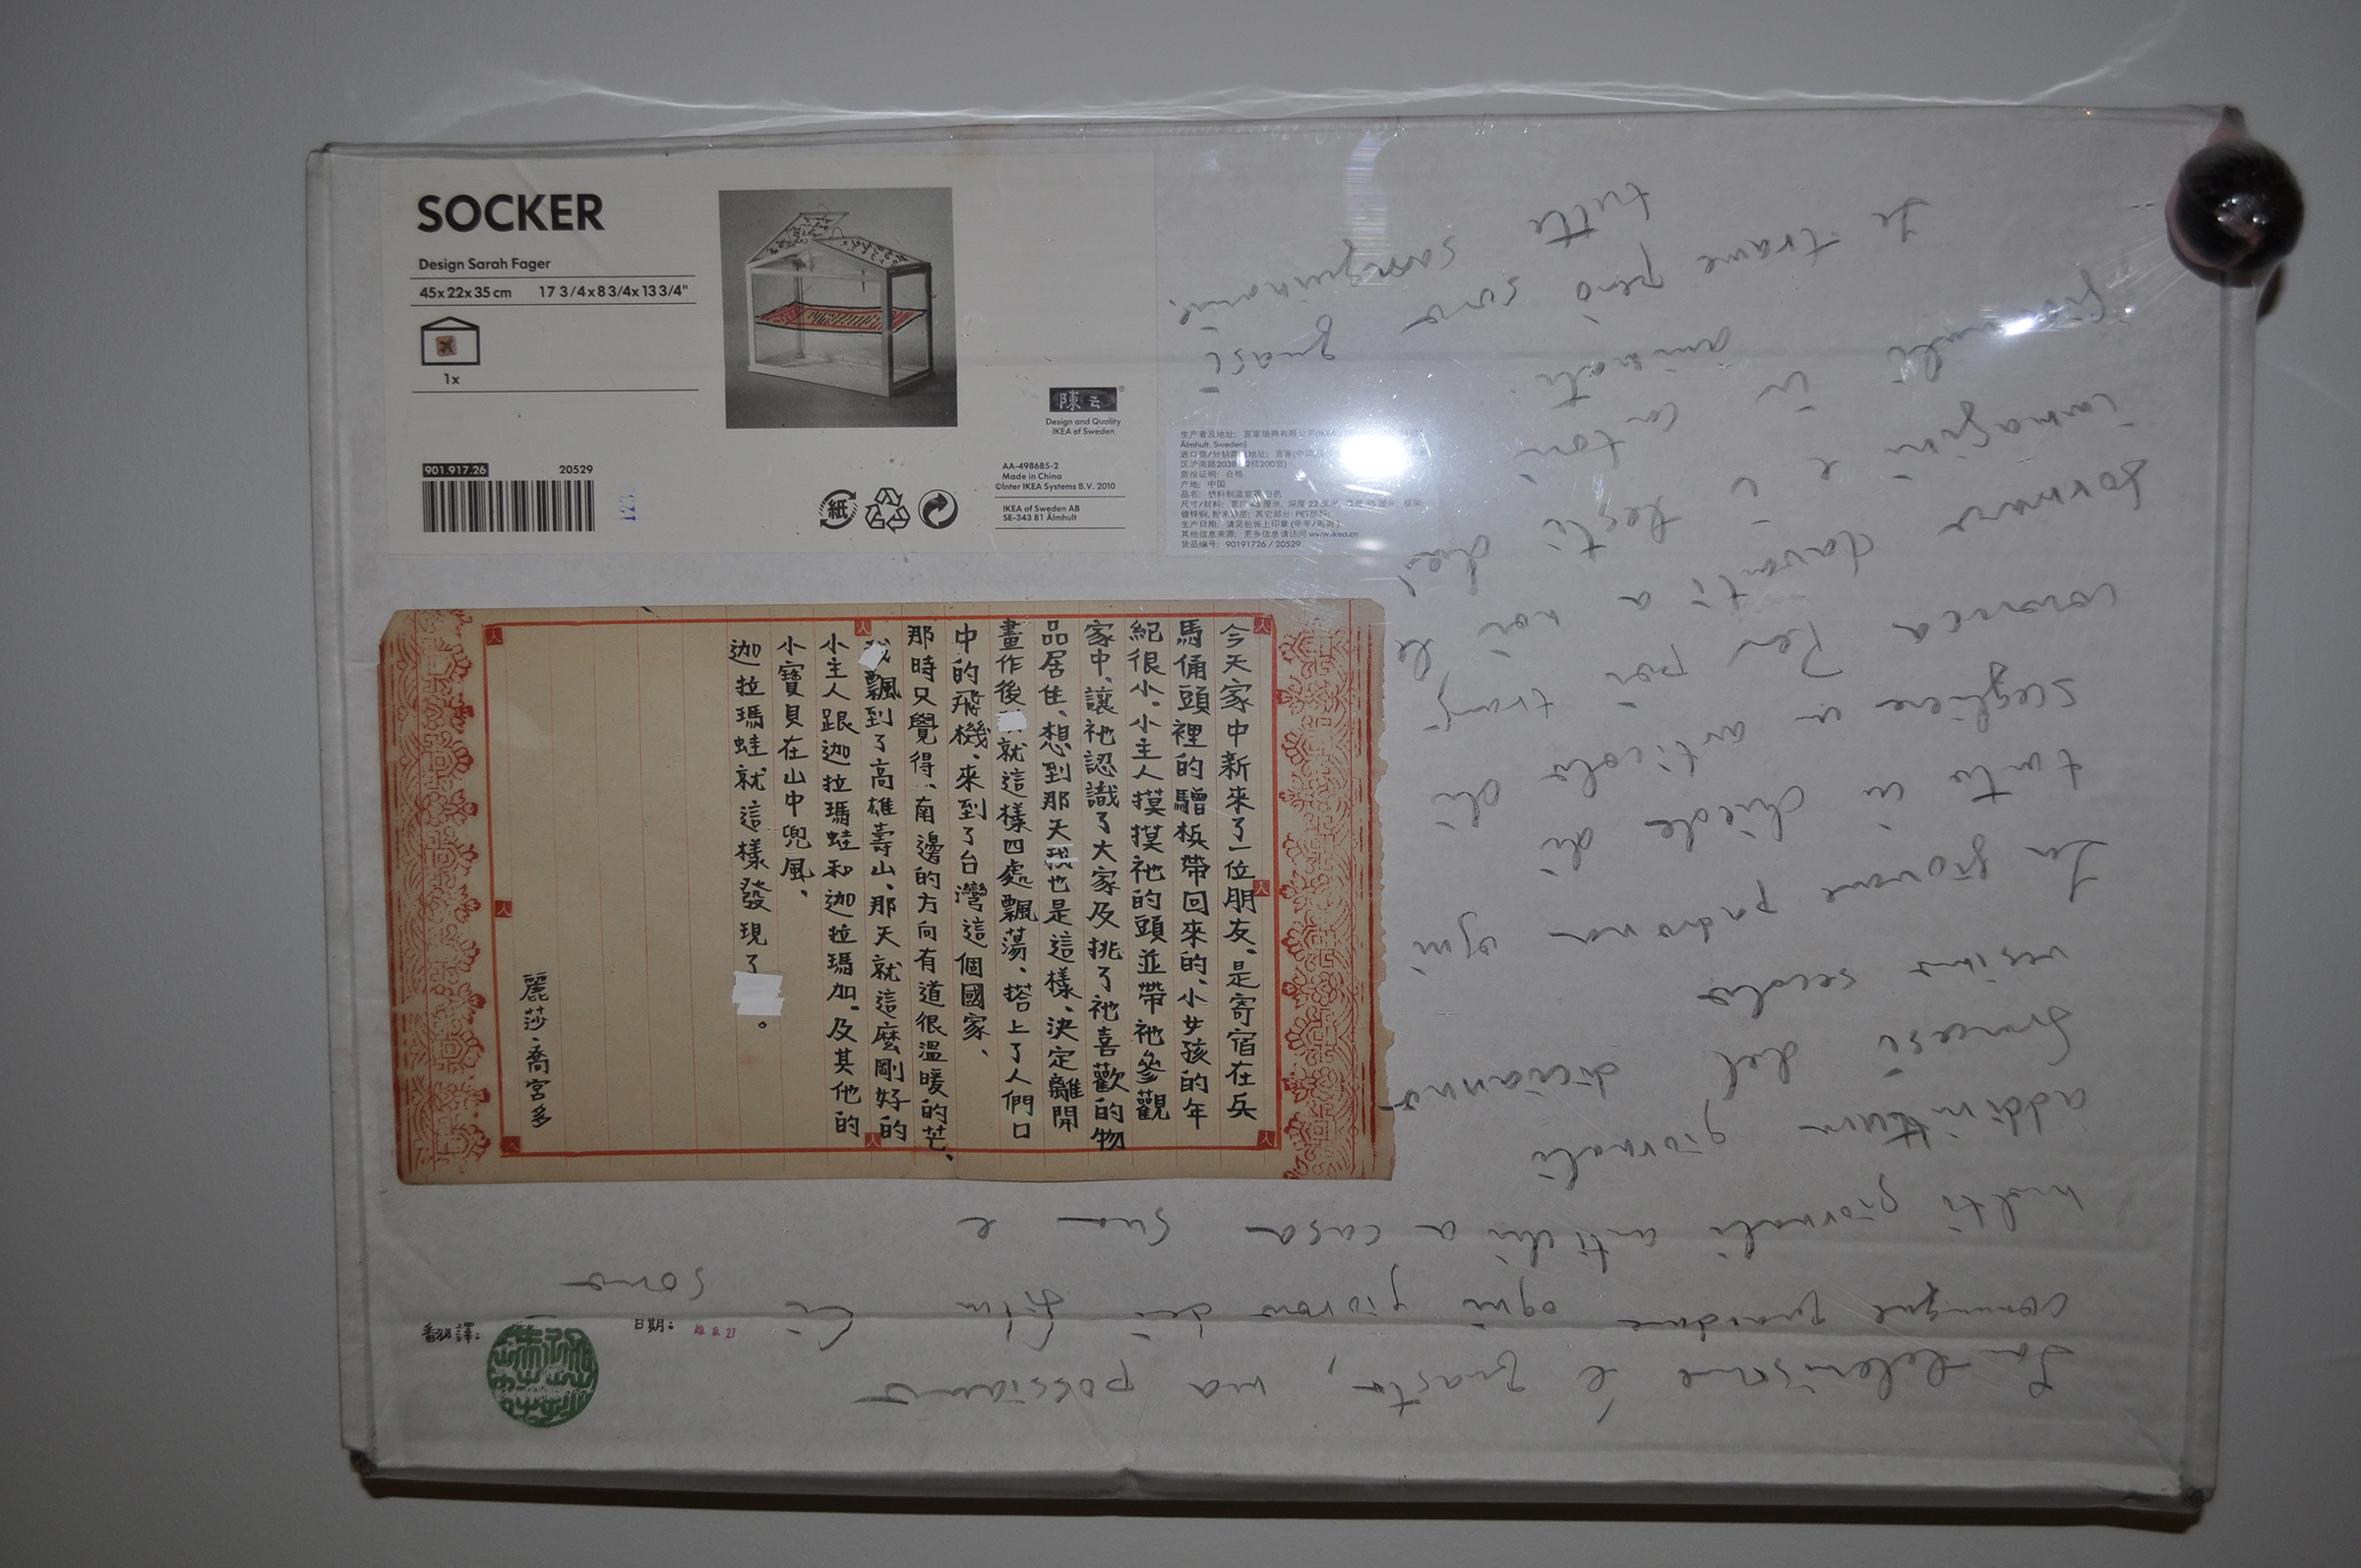 SOCKER
Design Sarah Fager
45x22x35 cm 17 3/4x8 3/4x13 3/4"
1x
陳云
®
Design and Quality
IKEA of Sweden
901.917.26 20529
AA-498685-2
Made in China
©Inter IKEA Systems B.V. 2010
IKEA of Sweden AB
SE-343 81 Älmhult
紙
生产者及地址: 宜家瑞典有限公司(IKEA
Älmhult, Sweden)
进口商/分销商及地址: 宜家(中国
质检证明: 合格
产地: 中国
品名: 塑料制温室 白色
生产日期: 请见包装上印章(年年/周周)
其他信息来源: 更多信息请访问 www.ikea.cn
货品编号: 90191726 / 20529
今天家中新來了一位朋友、是寄宿在兵
馬俑頭裡的驓板帶回來的、小女孩的年
紀很小。小主人摸摸祂的頭並帶祂參觀
家中、讓祂認識了大家及挑了祂喜歡的物
品居住、想到那天我也是這樣、決定離開
畫作後 就這樣四處飄蕩、搭上了人們口
中的飛機、來到了台灣這個國家、
那時只覺得、南邊的方向有道很溫暖的芒、
我飄到了高雄壽山、那天就這麼剛好的
小主人跟迦拉瑪蛙和迦拉瑪加。及其他的
小寶貝在山中兜風、
迦拉瑪蛙就這樣發現了 。
麗莎·喬宮多
翻譯:
日期:
La televisione è guasta, ma possiamo
comunque guardare ogni giorno dei film. Ci sono
molti giornali antichi a casa sua e
addirittura giornali
francesi del dicianno
vesimo secolo
La giovane padrona ogni
tanto ci chiede di
scegliere un articolo di
cronaca Per poi
formare davanti a noi le
immagini e i testi dei
giornali in cartoni animati.
Le trame però sono quasi
tutte sanguinarie.